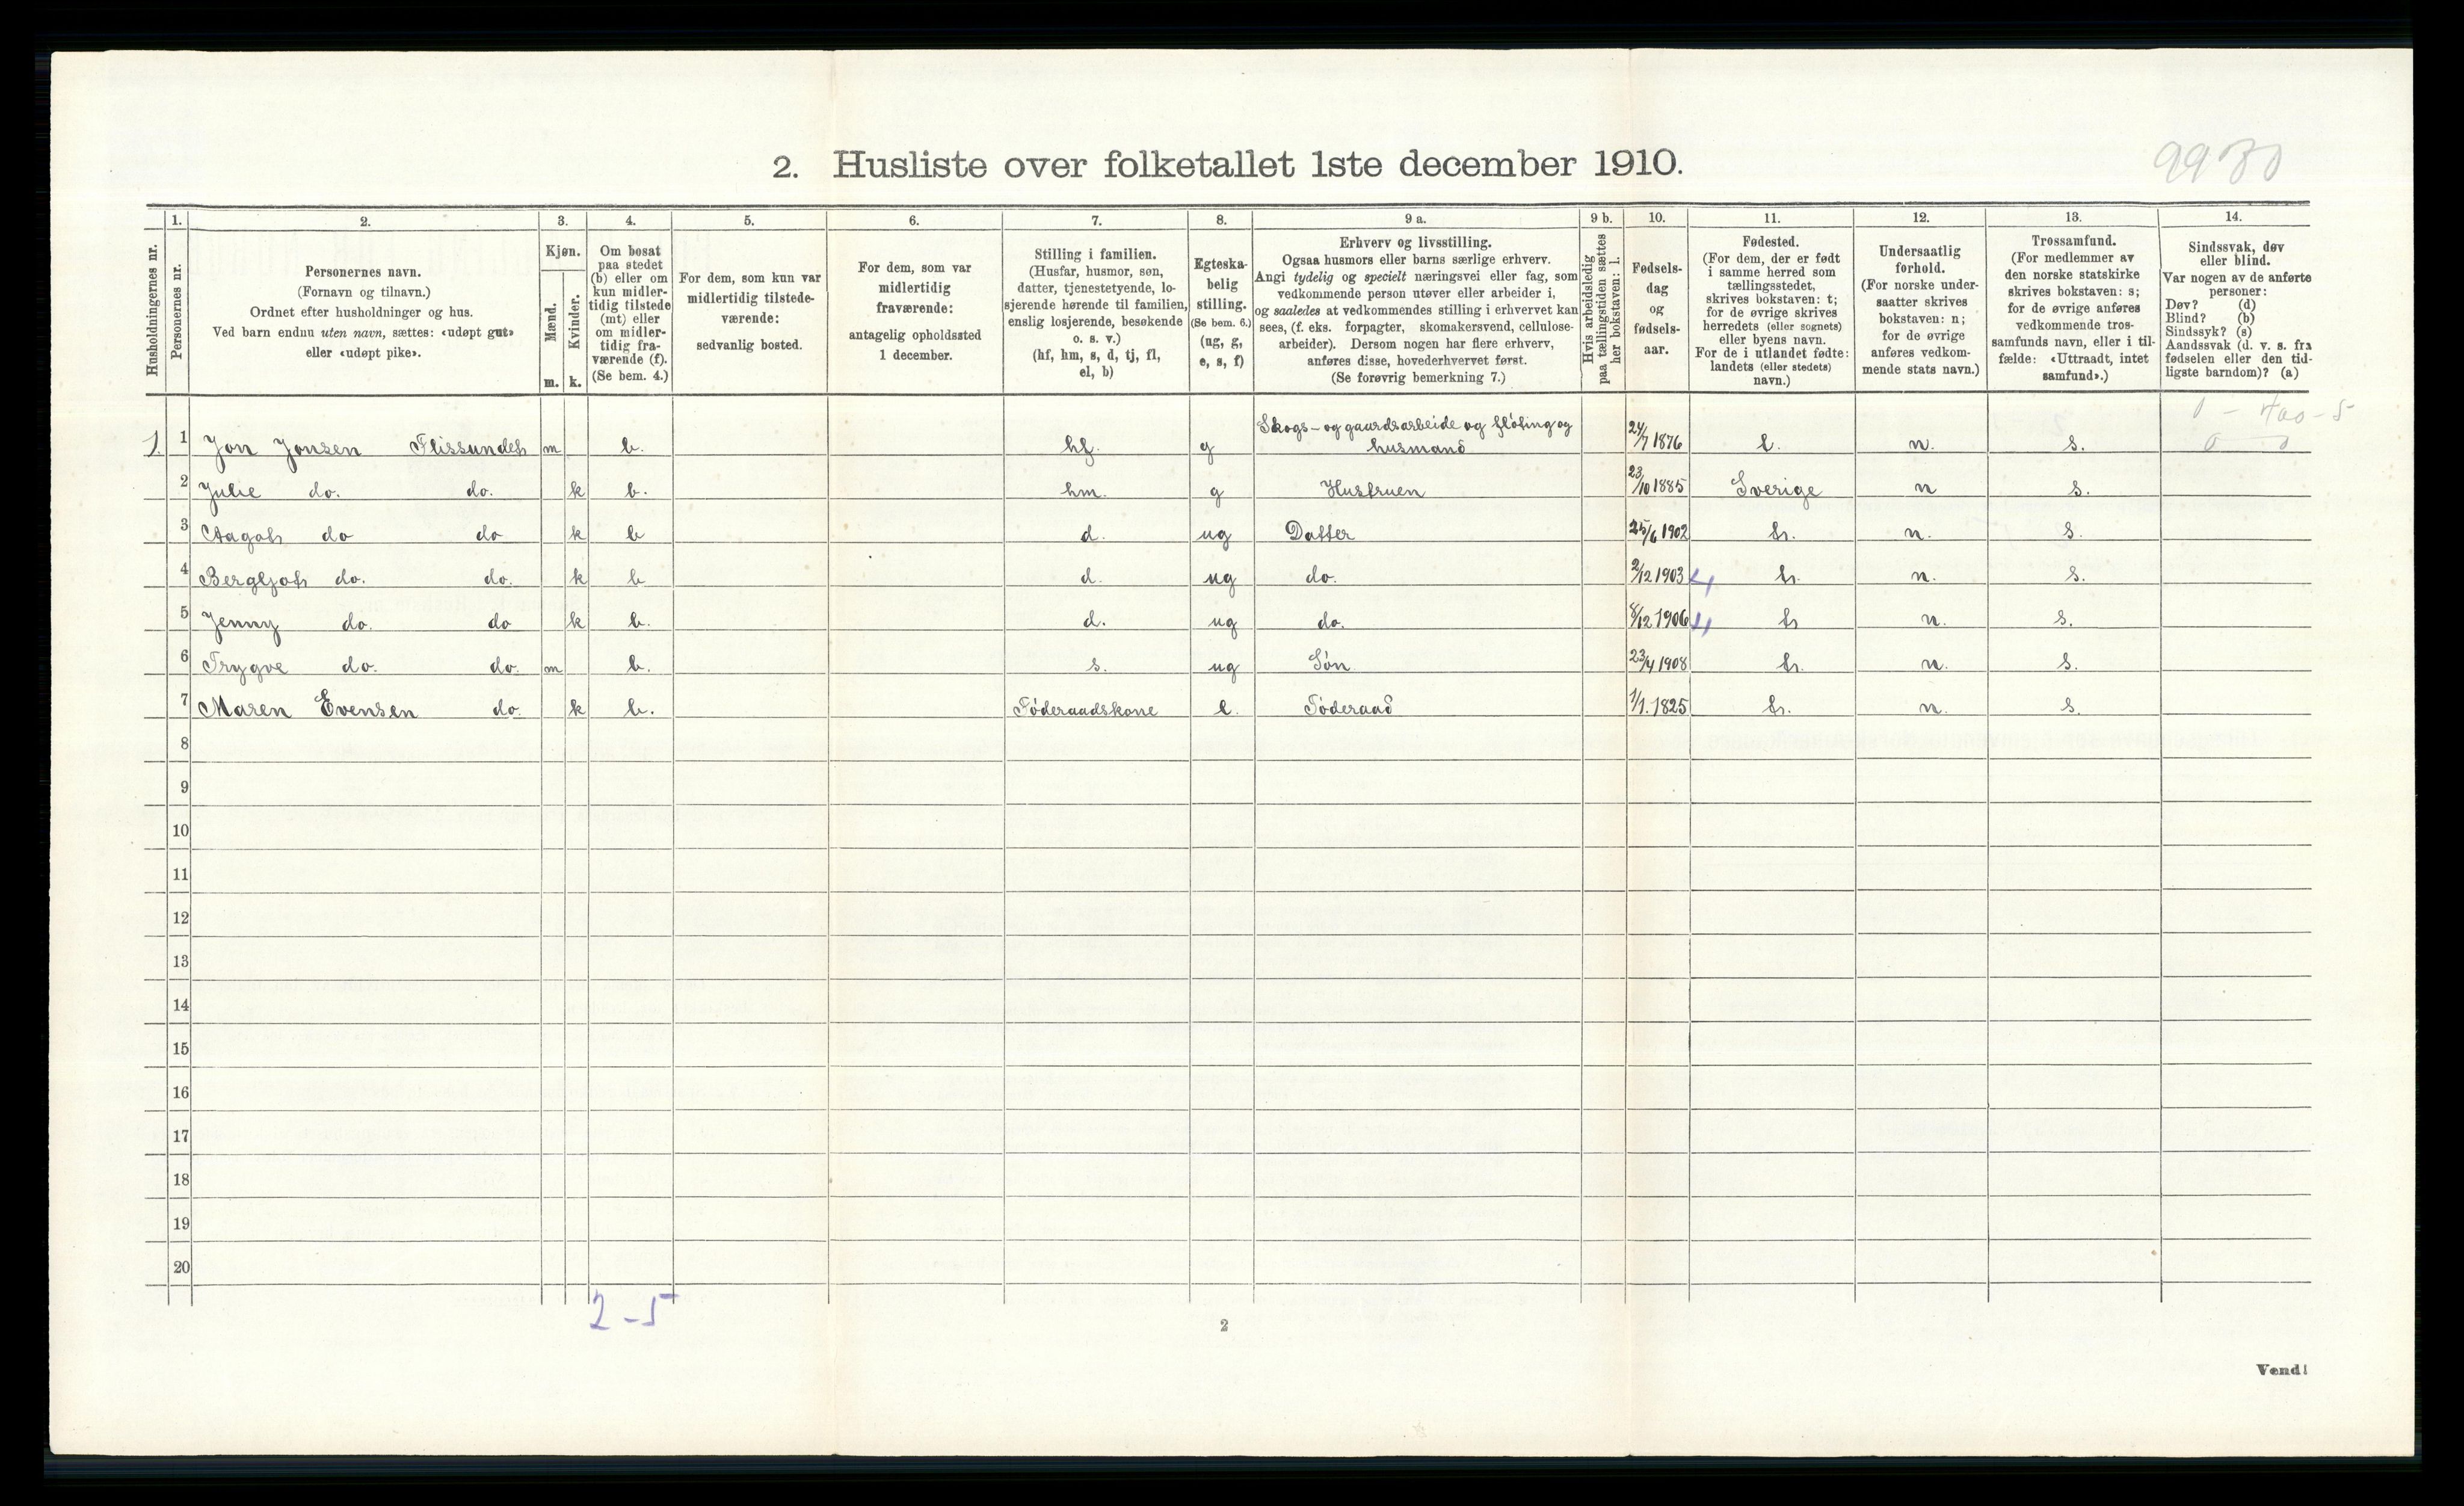 2. Husliste over folketallet 1ste december 1910.
9930
Husholdningernes nr.
1.
Personernes nr.
2.
Personernes navn.
(Fornavn og tilnavn.)
Ordnet efter husholdninger og hus.
Ved barn endnu uten navn, sættes: «udøpt gut»
eller «udøpt pike».
3.
Kjøn.
Mænd.
m.
Kvinder.
k.
4.
Om bosat
paa stedet
(b) eller om
kun midler-
tidig tilstede
(mt) eller
om midler-
tidig fra-
værende (f).
(Se bem. 4.)
5.
For dem, som kun var
midlertidig tilstede-
værende:
sedvanlig bosted.
6.
For dem, som var
midlertidig
fraværende:
antagelig opholdssted
1 december.
7.
Stilling i familien.
(Husfar, husmor, søn,
datter, tjenestetyende, lo-
sjerende hørende til familien,
enslig losjerende, besøkende
o. s. v.)
(hf, hm, s, d, tj, fl,
el, b)
8.
Egteska-
belig
stilling.
(Se bem. 6.)
(ug, g,
e, s, f)
9 a.
Erhverv og livsstilling.
Ogsaa husmors eller barns særlige erhverv.
Angi tydelig og specielt næringsvei eller fag, som
vedkommende person utøver eller arbeider i,
og saaledes at vedkommendes stilling i erhvervet kan
sees, (f. eks. forpagter, skomakersvend, cellulose-
arbeider). Dersom nogen har flere erhverv,
anføres disse, hovederhvervet først.
(Se forøvrig bemerkning 7.)
9 b.
Hvis arbeidsledig
paa tællingstiden sættes
her bokstaven: l.
10.
Fødsels-
dag
og
fødsels-
aar.
11.
Fødested.
(For dem, der er født
i samme herred som
tællingsstedet,
skrives bokstaven: t;
for de øvrige skrives
herredets (eller sognets)
eller byens navn.
For de i utlandet fødte:
landets (eller stedets)
navn.)
12.
Undersaatlig
forhold.
(For norske under-
saatter skrives
bokstaven: n;
for de øvrige
anføres vedkom-
mende stats navn.)
13.
Trossamfund.
(For medlemmer av
den norske statskirke
skrives bokstaven: s;
for de øvrige anføres
vedkommende tros-
samfunds navn, eller i til-
fælde: «Uttraadt, intet
samfund».)
14.
Sindssvak, døv
eller blind.
Var nogen av de anførte
personer:
Døv? (d)
Blind? (b)
Sindssyk? (s)
Aandssvak (d. v. s. fra
fødselen eller den tid-
ligste barndom)? (a)
Skogs- og gaardsarbeide og fløting og
1. 1 Jon Jonsen Flissundet m b. hf. g husmand 24/7 1876 t. n. s. 0 0
2 Julie do. do. k b. hm. g Hustruen 23/10 1885 Sverige n s.
3 Aagot do do k b d. ug Datter 25/6 1902 t. n. s.
4 Bergljot do. do. k b d. ug do. 2/12 1903 t. n. s.
5 Jenny do. do k b. d. ug do. 8/12 1906 t n. s.
6 Trygve do. do. m b. s. ug Søn 23/4 1908 t. n. s.
7 Maren Evensen do. k b. Føderaadskone e. Føderaad 1/1. 1825 t. n. s.
8
9
10
11
12
13
14
15
16
17
18
19
20
2 - 5
2
Vend!